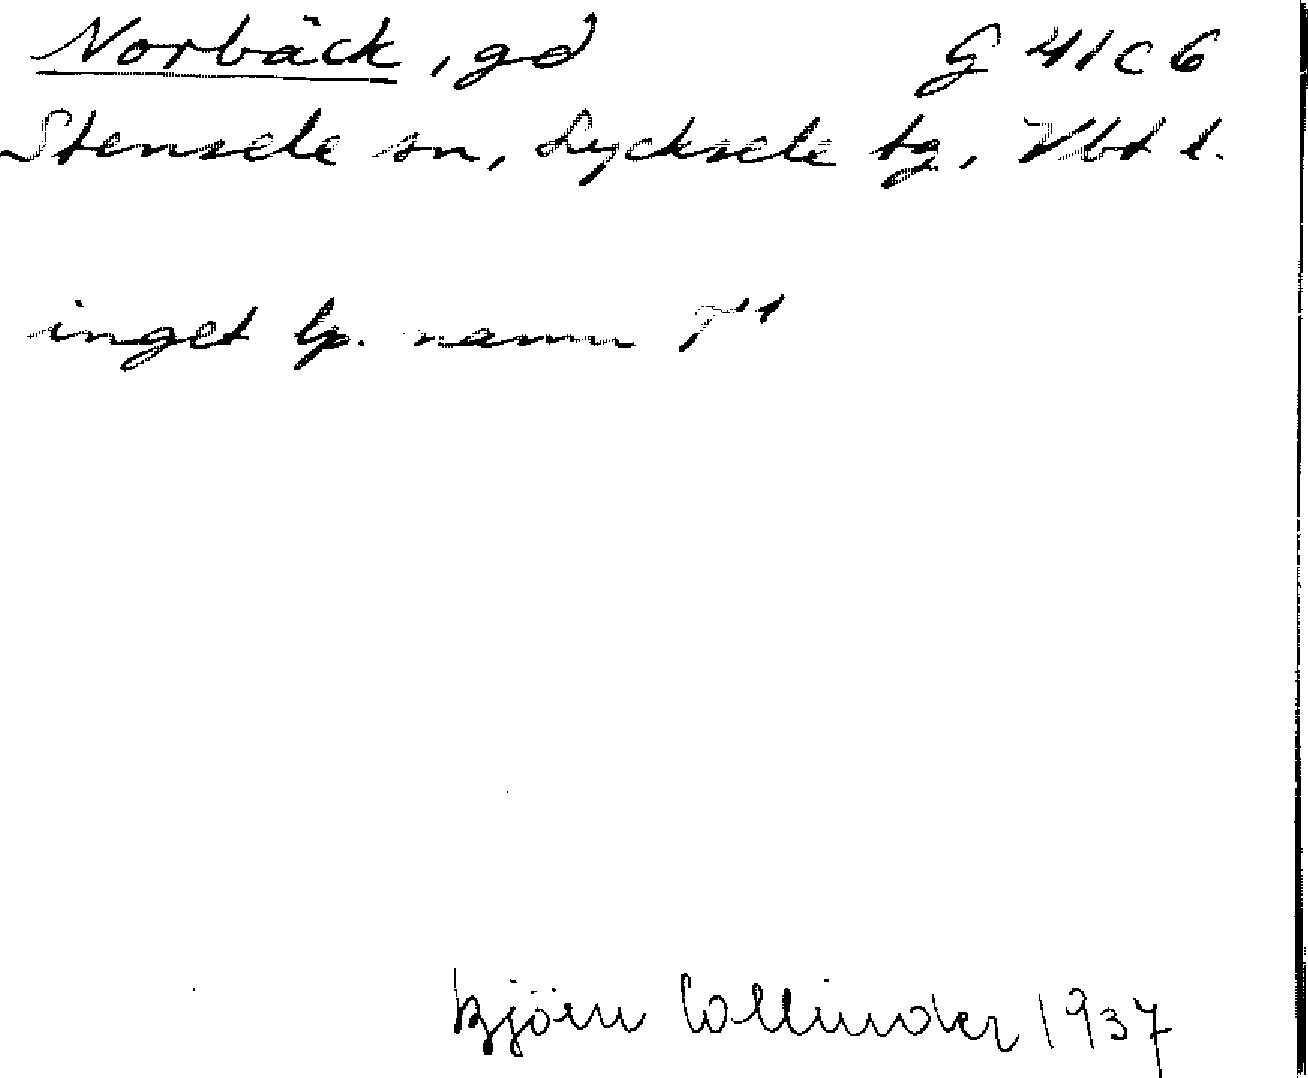 Norbäck, gd G 41 c 6
Stensele sn, Lycksele tg, Vbt l.
inget lp. namn
Björn Collinder 1937